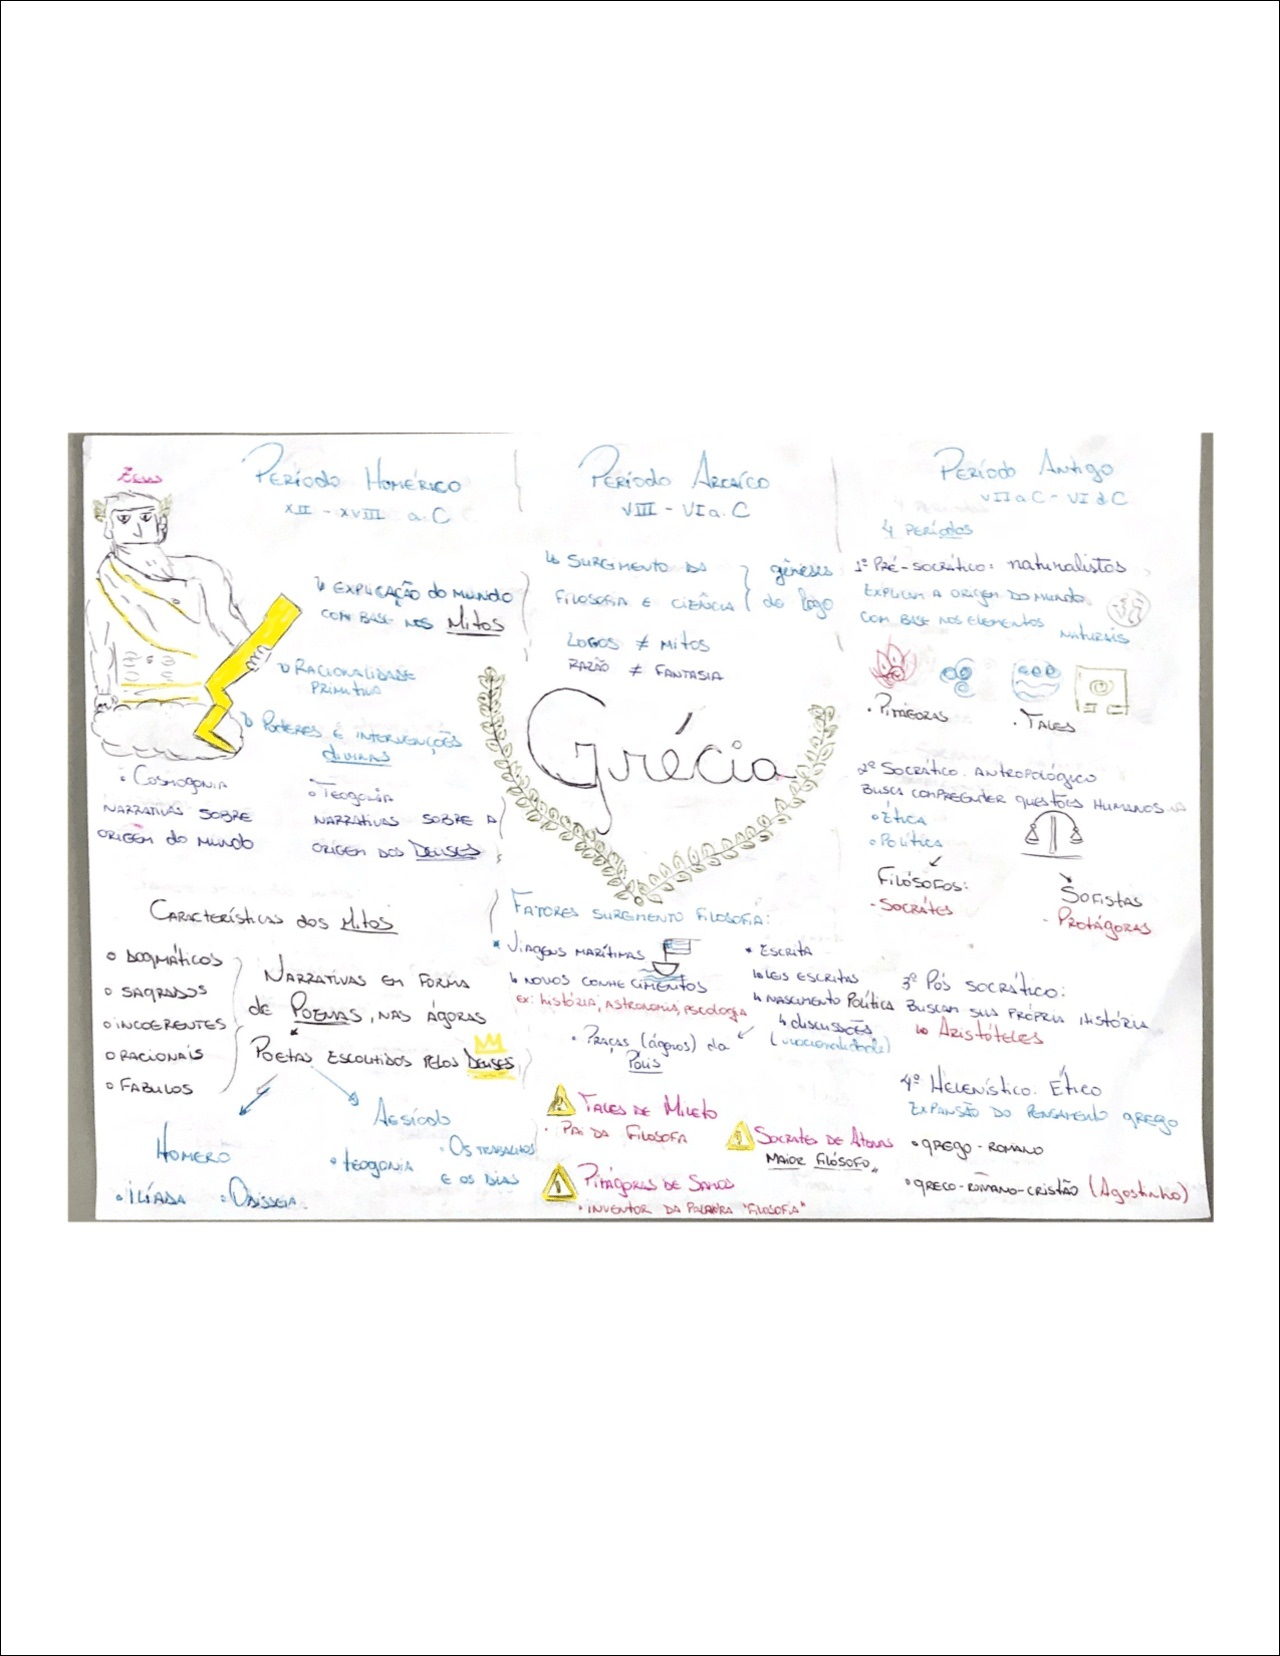 Zeus
Período Homérico
XII - XVIII a.C
↳ Explicação do mundo
com base nos Mitos
↳ Racionalidade
primitiva
↳ Poderes e intervenções
divinas
• Cosmogonia
narrativas sobre
origem do mundo
• Teogonia
narrativas sobre a
origem dos Deuses
Características dos Mitos
• Dogmáticos
• Sagrados
• Incoerentes
• Racionais
• Fabulos
Narrativas em forma
de Poemas, nas ágoras
Poetas escolhidos pelos Deuses
Homero
• Ilíada • Odisseia
• Teogonia
• Os trabalhos
e os dias
Período Arcaico
VIII - VI a.C
↳ Surgimento da
filosofia e ciência
gêneses
do logo
Logos ≠ Mitos
Razão ≠ Fantasia
Grécia
Fatores surgimento filosofia:
• Viagens marítimas
↳ novos conhecimentos
ex: história, astronomia, pscologia
• Escrita
↳ leis escritas
↳ nascimento Política
↳ discussões
• Praças (ágoras) da
Pólis
Tales de Mileto
• Pai da Filosofa
Socrates de Atenas
Maior filósofo
Pitágoras de Samos
• Inventor da palavra "filosofia"
Período Antigo
VII a C - VI d C
4 períodos
1º Pré-socrático: naturalistas
Explicam a origem do mundo
com base nos elementos naturais
• Pitágoras
• Tales
2º Socrático. Antropológico
Busca compreender questões humanos
• Ética
• Política
Filósofos:
- Socrátes
Sofistas
- Protágoras
3º Pós Socrático:
Buscam sua própria história
↳ Aristóteles
4º Helenístico. Ético
Expansão do pensamento grego
• grego-romano
• greco-romano-cristão (Agostinho)